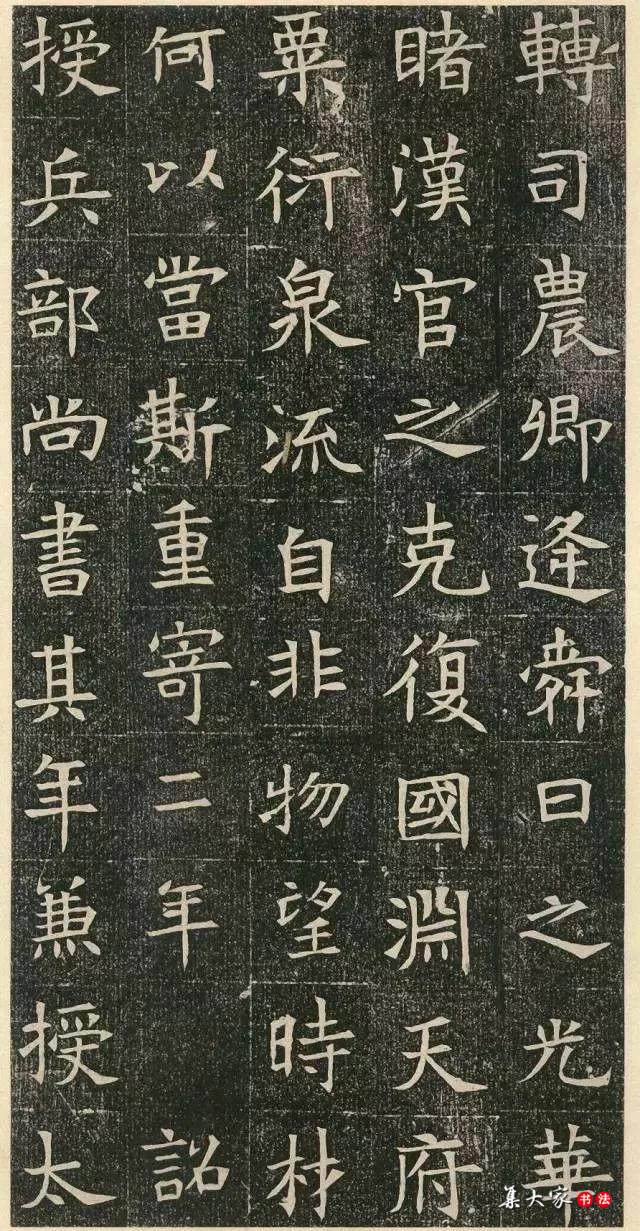 轉司農卿逢舜日之光華
睹漢官之克復國淵天府
粟衍泉流自非物望時材
何以當斯重寄二年 詔
授兵部尚書其年兼授太
集大家 书法